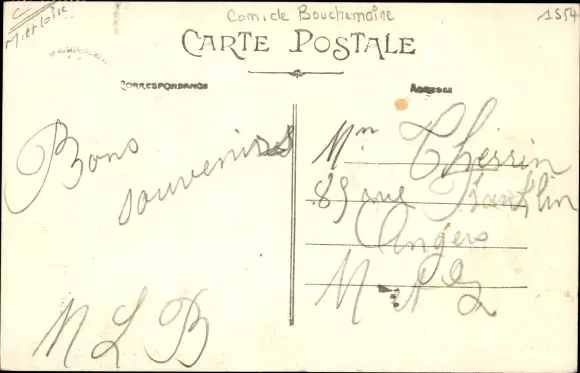 Com. de Bouchemaine
1554
CARTE POSTALE
CORRESPONDANCE
ADRESSE
Bons
souvenirs
M L B
Mr Therrin
89 rue Franklin
Angers
M et L